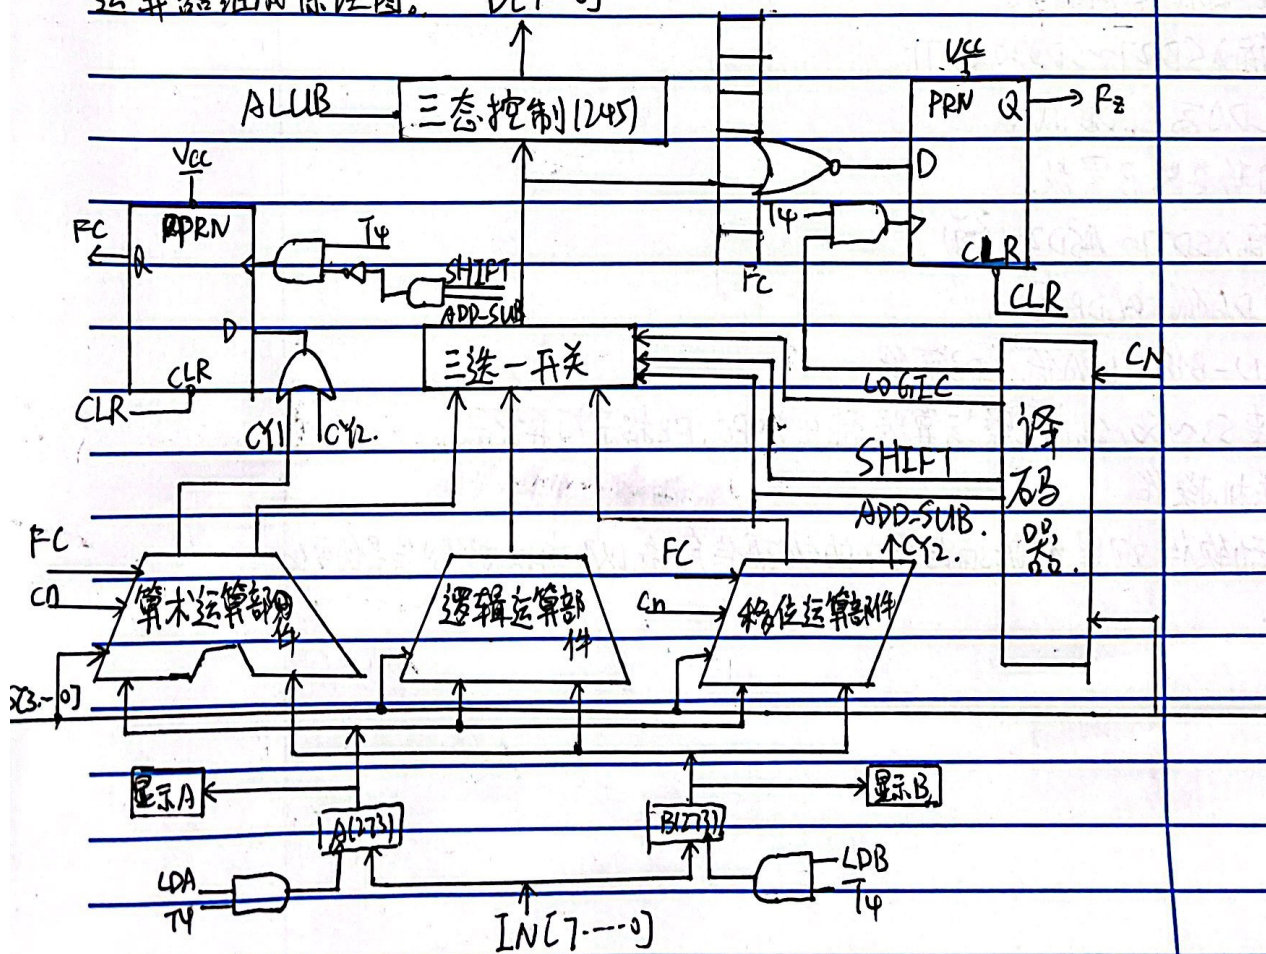 运算器组成原理图。 D[7…0]
ALUB
三态控制(245)
VCC
PRN Q
Fz
D
T4
CLR
CLR
Fc
VCC
PRN
FC
Q
T4
SHIFT
ADD-SUB
D
CLR
CLR
CY1 CY2.
三选一开关
LOGIC
CN
译
码
器
SHIFT
ADD-SUB.
CY2.
FC
Cn
算术运算部件
逻辑运算部
件
FC
Cn
移位运算部件
S[3…0]
显示A
显示B
A(273)
B(273)
LDA
T4
LDB
T4
IN[7…0]